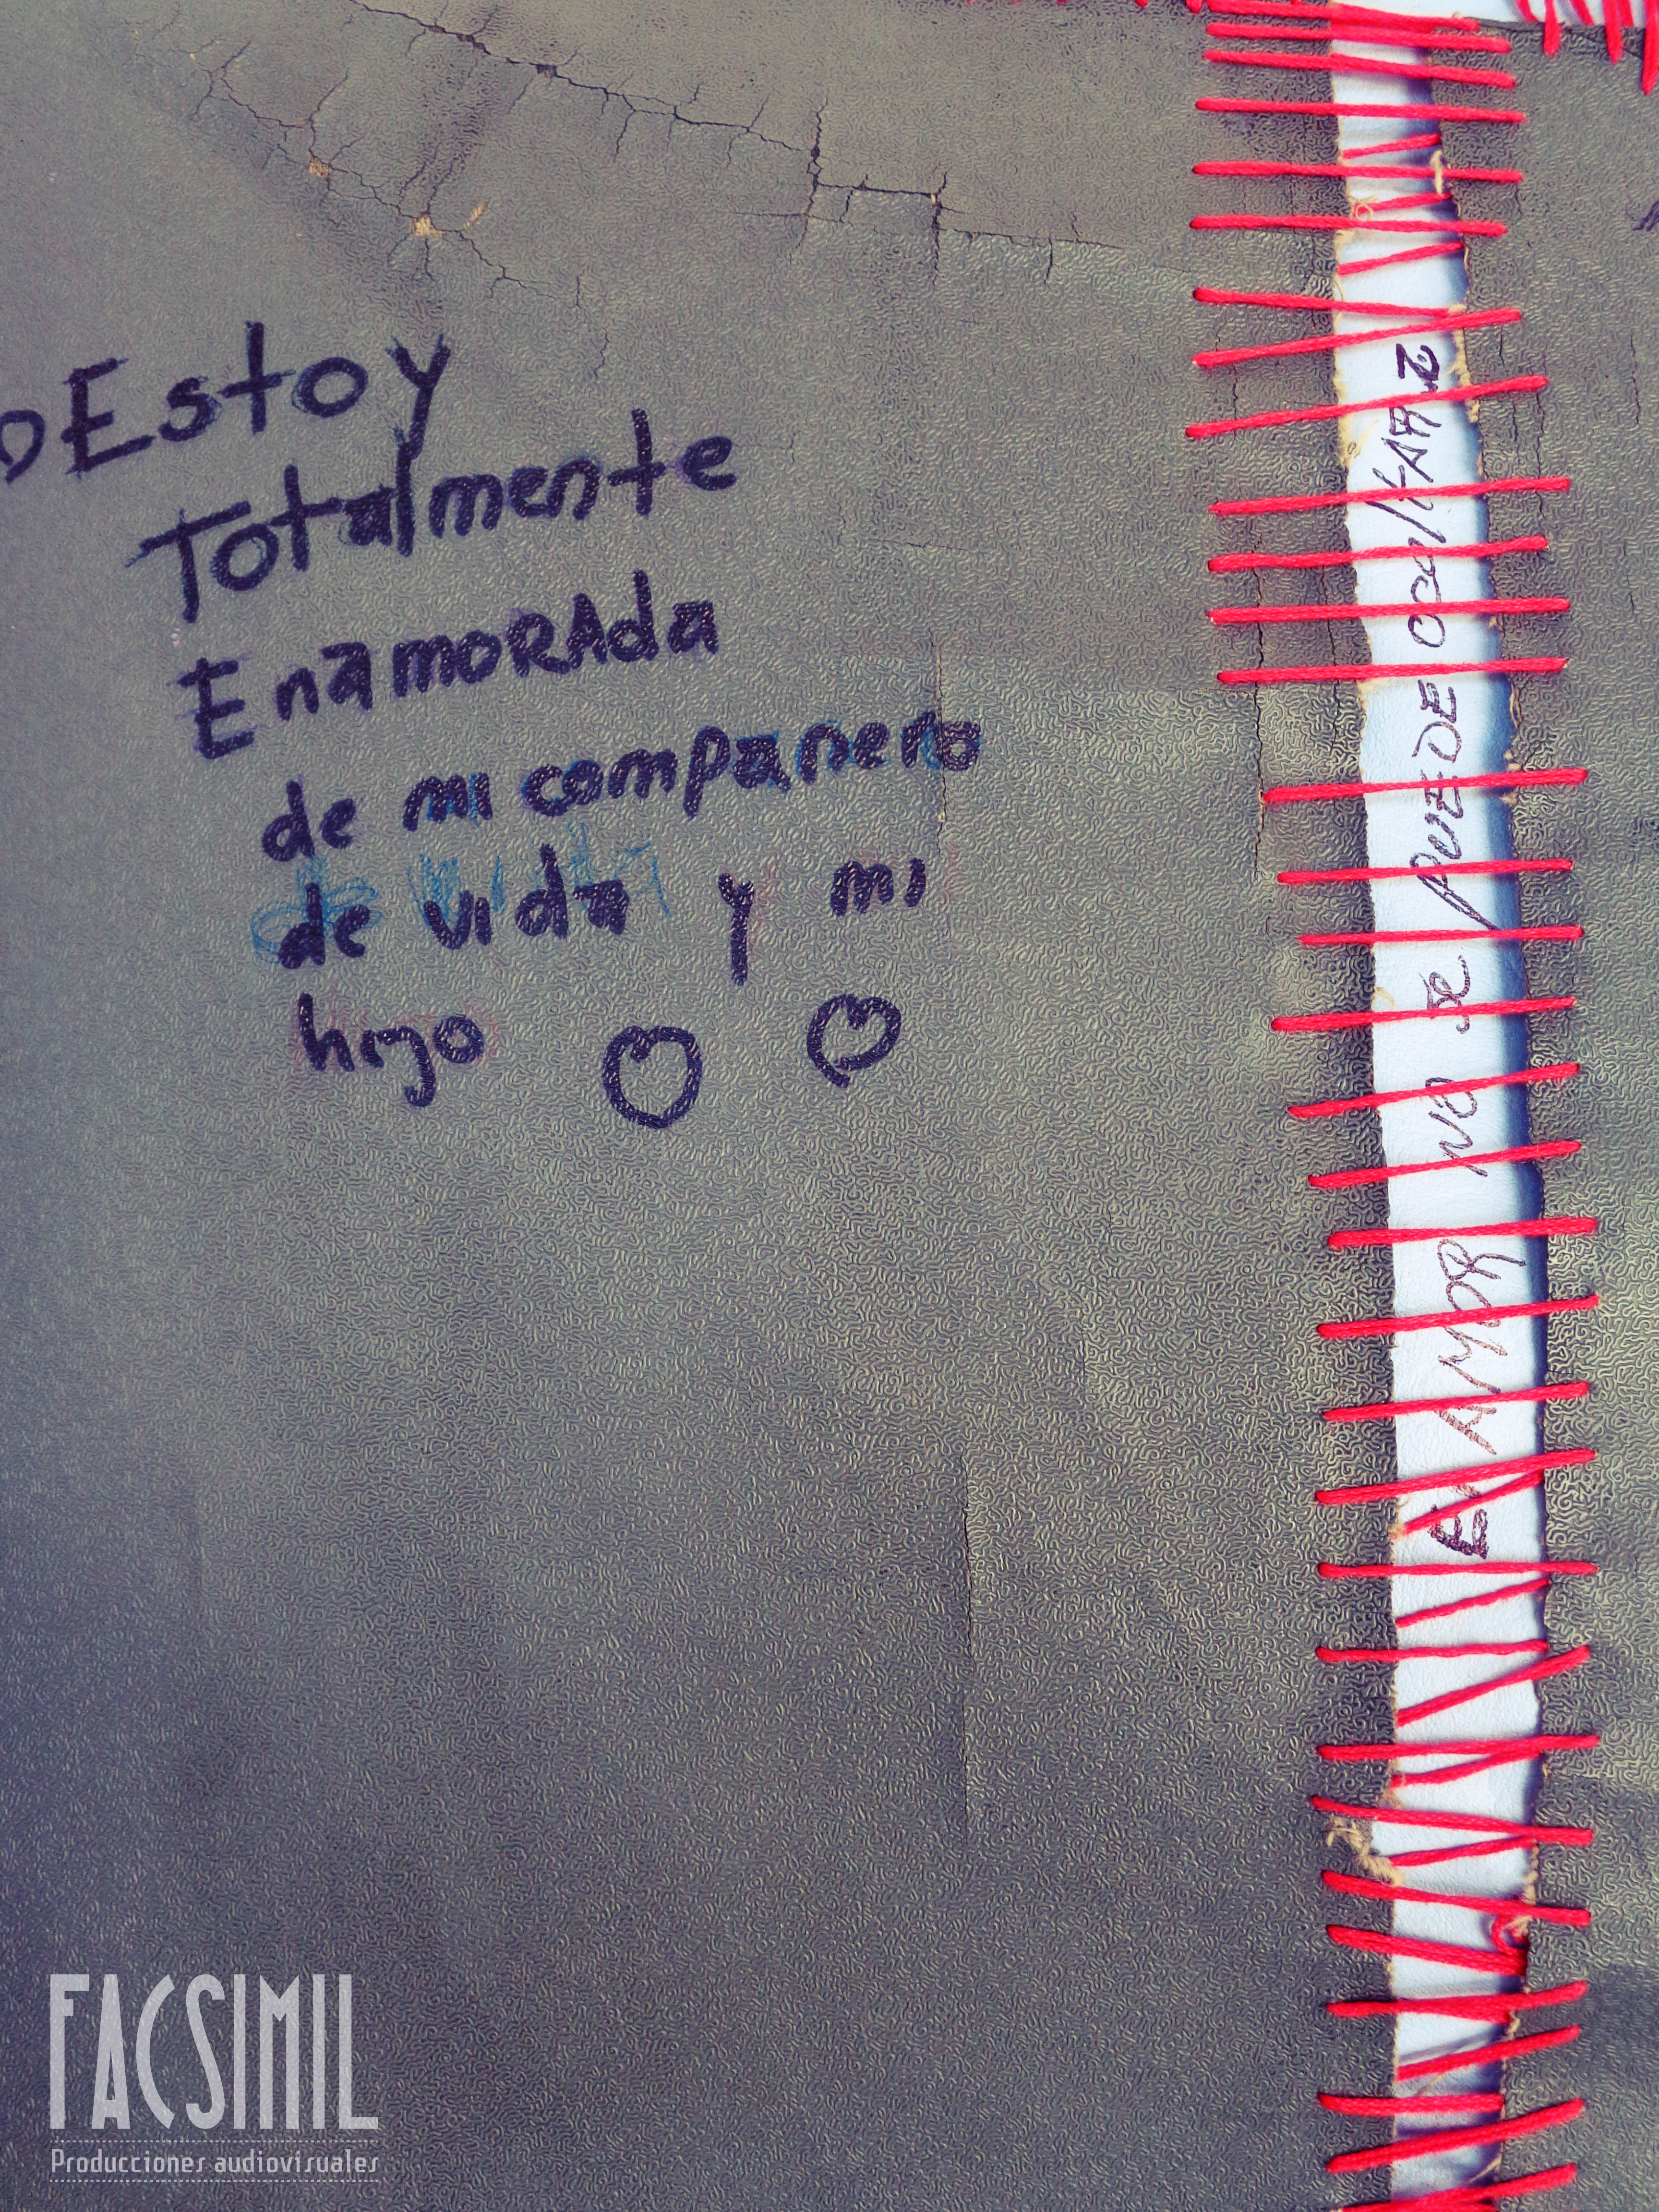 Estoy
Totalmente
EnamoRAda
de mi companero
de vida y mi
hijo
El AMOR No se PUEDE OcultAR
FACSIMIL
Producciones audiovisuales